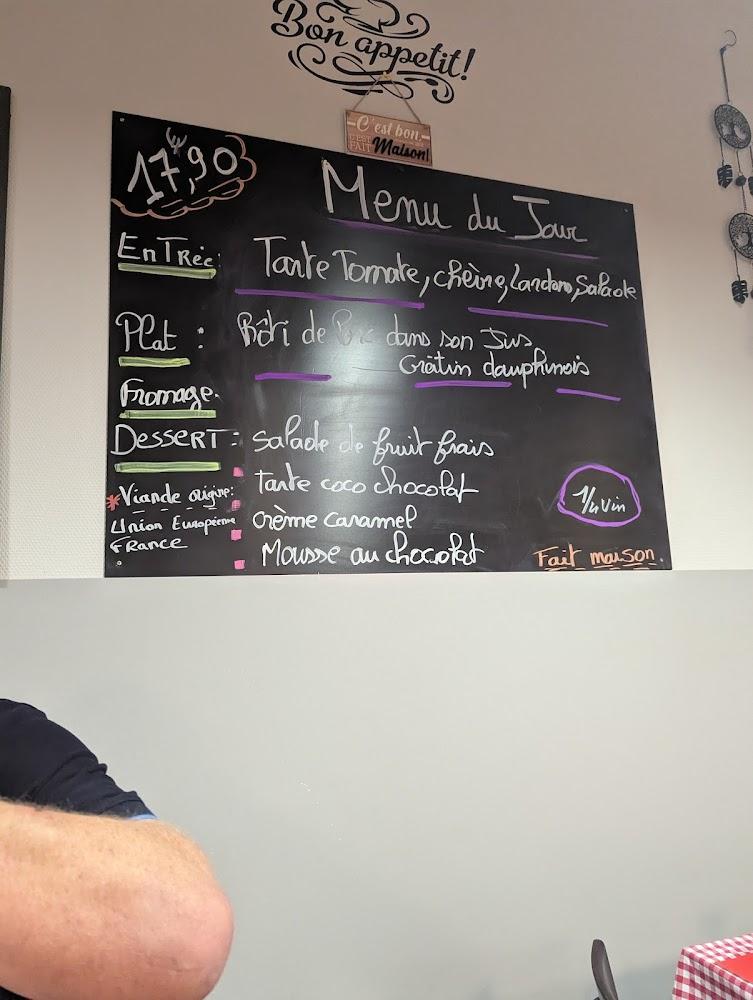 Bon appetit!
C'est bon,
C'EST FAIT Maison!
17,90
Menu du Jour
EnTRée: Tarte Tomate, chèvre, Lardons, Salade
Plat : Rôti de Porc dans son Jus
Gratin dauphinois
Fromage.
DESSERT: salade de fruit frais
tarte coco chocolat
crème caramel
Mousse au chocolat
*Viande origine:
Union Européenne
France
1/4 vin
Fait maison.